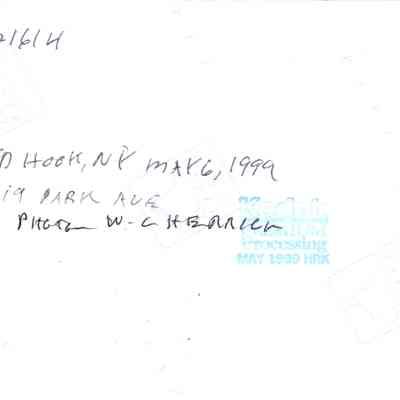 21614
D HOOK, NY MAY 6, 1999
19 PARK AVE
PHOTO W. C HERRICK
Kodak
Processing
MAY 1999 HRK